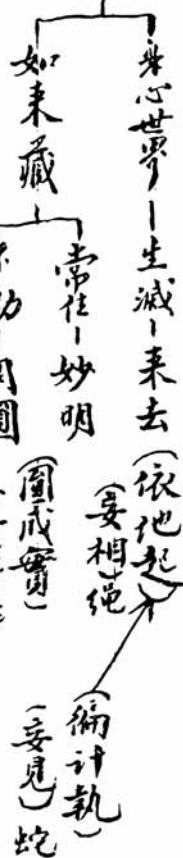 身心世界－生滅－来去（依他起）
（妄相）绳
（徧计執）
（妄見）蛇
如来藏
常住－妙明
（圓成實）